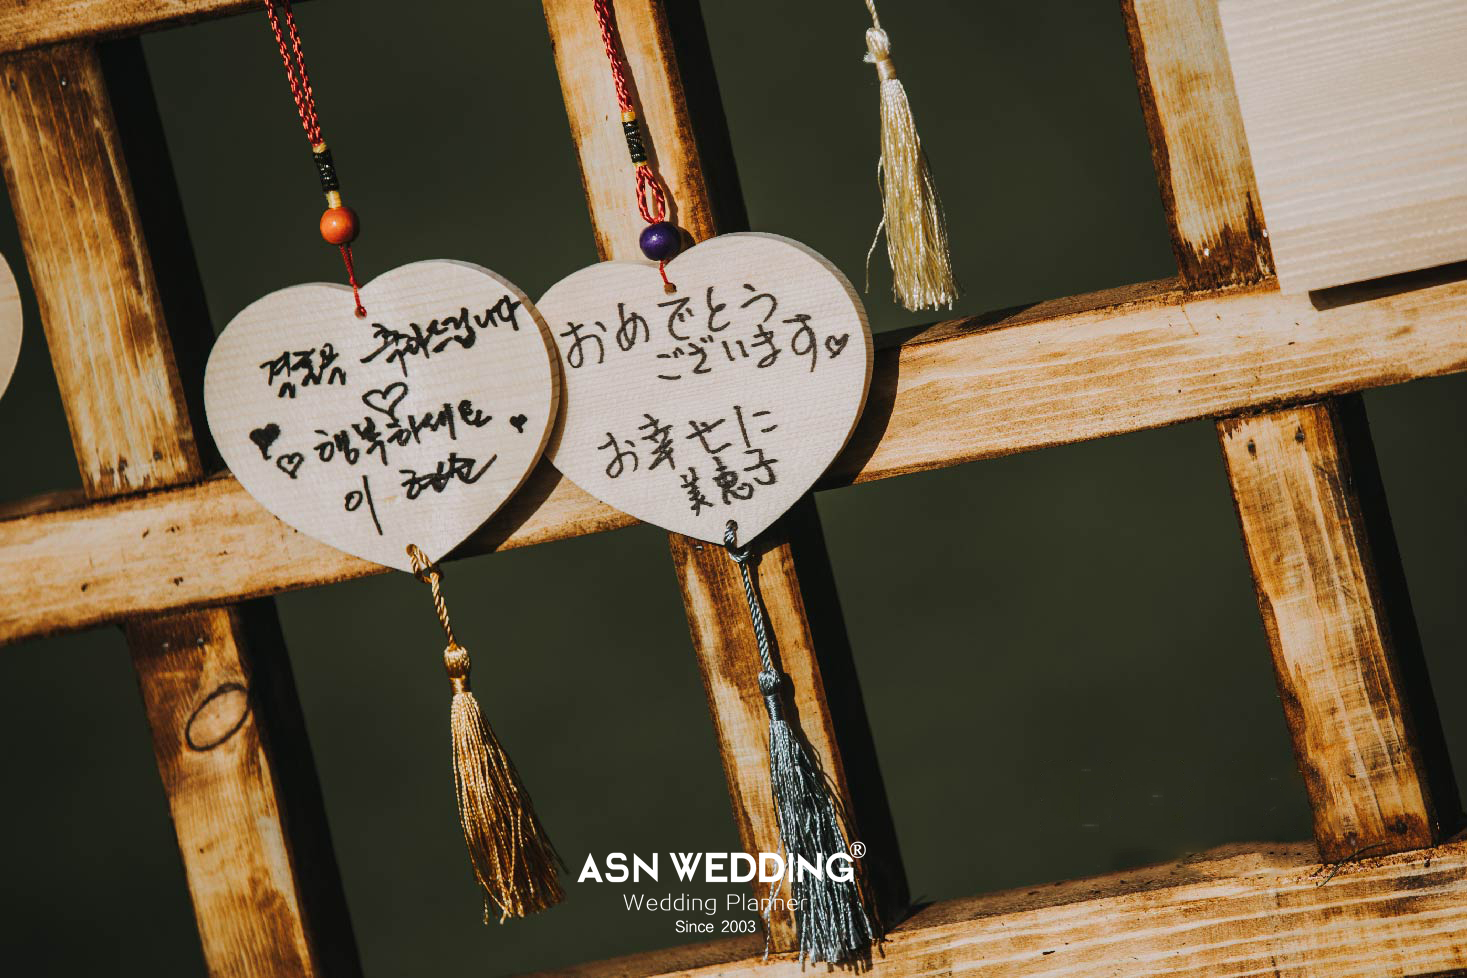 결혼을 축하드립니다
행복하세요
이
おめでとう
ございます
お幸せに
美恵子
ASN WEDDING®
Wedding Planner
Since 2003